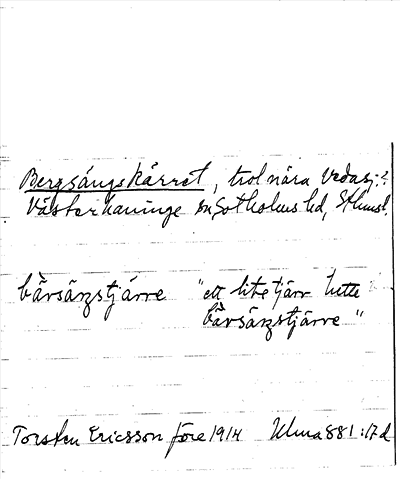 Bergsängskärret, trol nära Vedasj:?
Västerhaninge sn Sotholms hd, Sthmsl.
bä̀rsäŋstjärre "ett lite tjärr hette
bä̀rsäŋstjärre"
Torsten Ericsson före 1914 Ulma 881:17 d